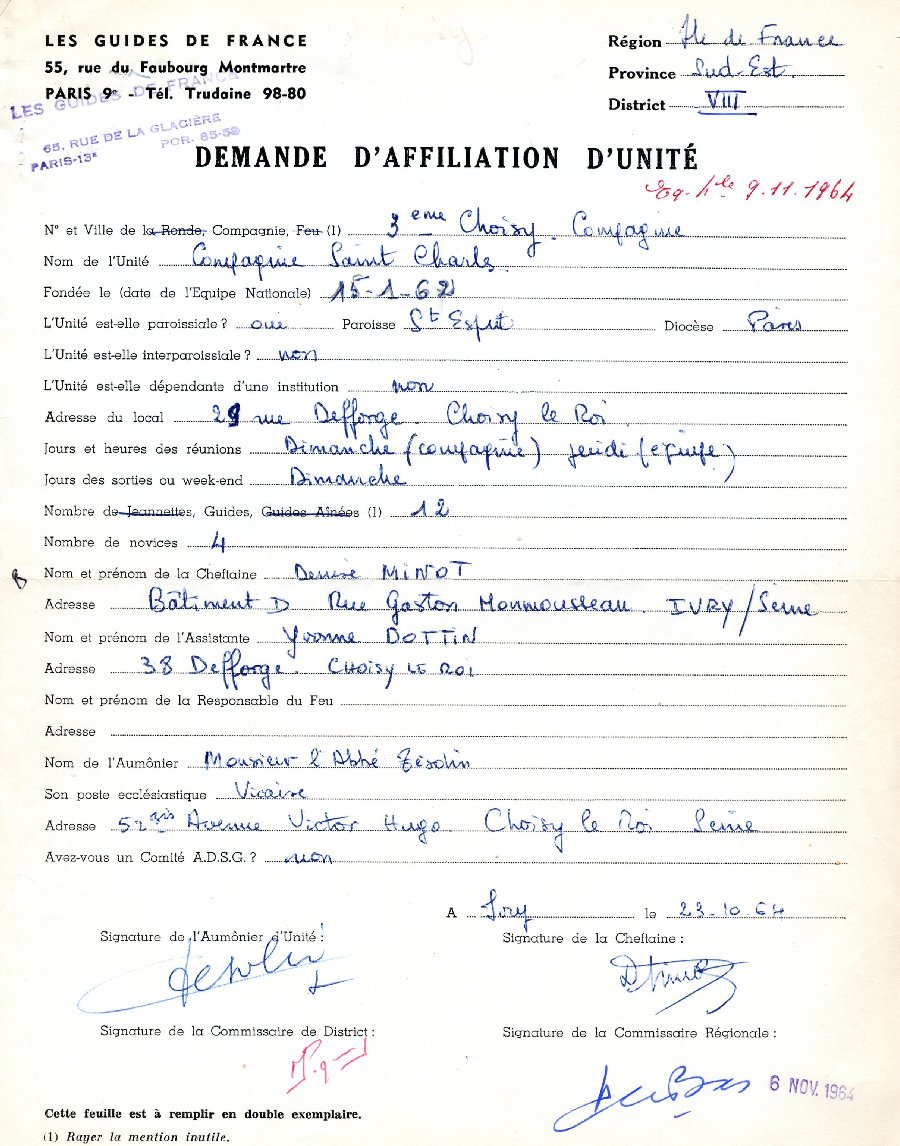 LES GUIDES DE FRANCE
55, rue du Faubourg Montmartre
PARIS 9e - Tél. Trudaine 98-80
LES GUIDES DE FRANCE
65, RUE DE LA GLACIÈRE
PARIS-13e POR- 85-52
Région Ile de France
Province Sud-Est.
District VIII
DEMANDE D'AFFILIATION D'UNITÉ
9.11.1964
N° et Ville de la Ronde, Compagnie, Feu (1) 3eme Choisy. Compagnie
Nom de l'Unité Compagnie Saint Charles.
Fondée le (date de l'Equipe Nationale) 15-1-62
L'Unité est-elle paroissiale ? oui Paroisse St Esprit Diocèse Paris
L'Unité est-elle interparoissiale ? non
L'Unité est-elle dépendante d'une institution non
Adresse du local 29 rue Defforge. Choisy le Roi
Jours et heures des réunions Dimanche (compagnie) jeudi (équipe)
Jours des sorties ou week-end Dimanche
Nombre de Jeannettes, Guides, Guides Aînées (1) 12
Nombre de novices 4
Nom et prénom de la Cheftaine Denise MINOT
Adresse Bâtiment D Rue Gaston Monmousseau. IVRY/Seine
Nom et prénom de l'Assistante Yvonne DOTTIN
Adresse 38 Defforge. CHOISY LE ROI
Nom et prénom de la Responsable du Feu
Adresse
Nom de l'Aumônier Monsieur l'Abbé
Son poste ecclésiastique Vicaire
Adresse 52 Avenue Victor Hugo. Choisy le Roi Seine
Avez-vous un Comité A.D.S.G. ? non
A Ivry le 23-10-64
Signature de l'Aumônier d'Unité :
Signature de la Cheftaine :
Signature de la Commissaire de District :
Signature de la Commissaire Régionale :
6 NOV. 1964
Cette feuille est à remplir en double exemplaire.
(1) Rayer la mention inutile.